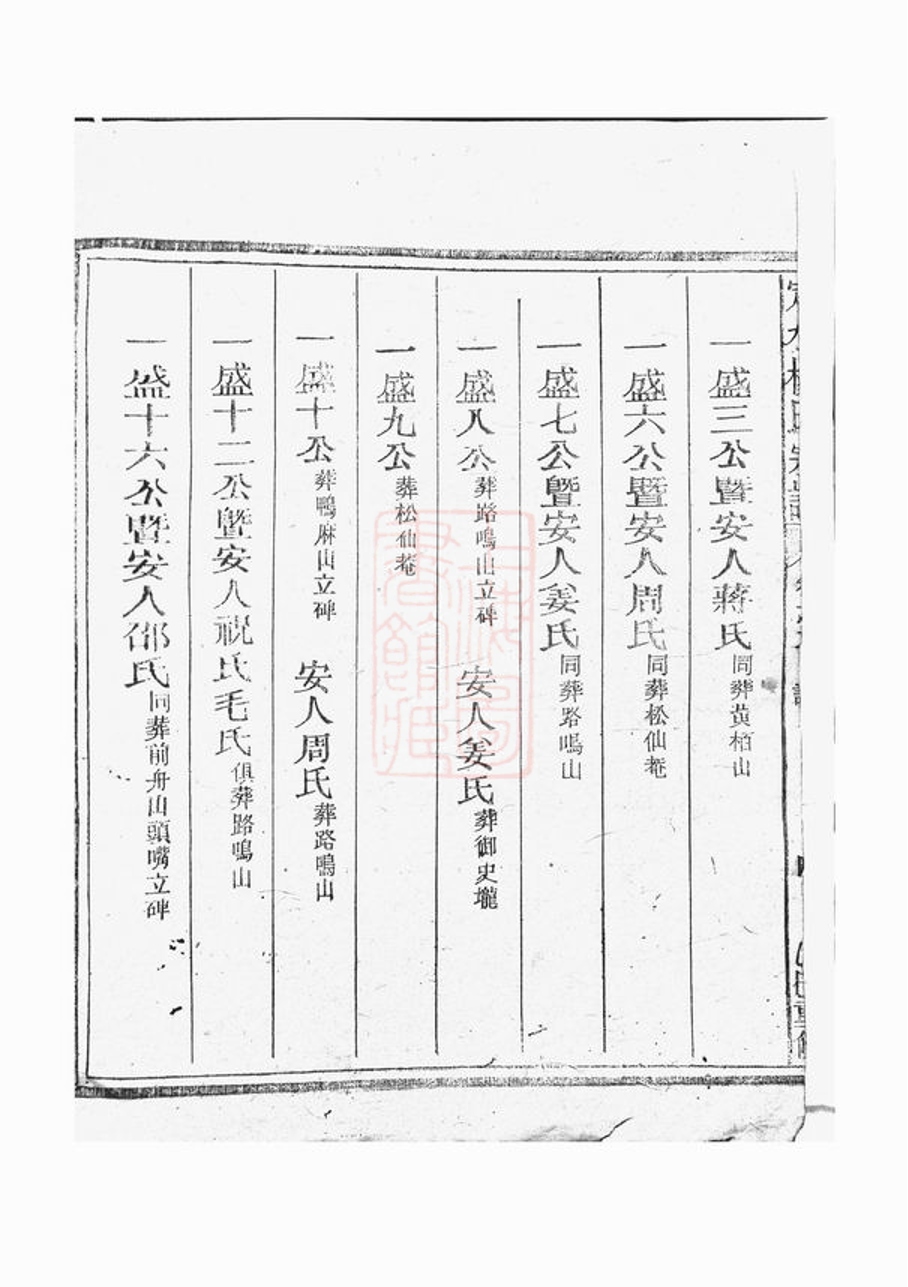 一盛三公暨安人蔣氏同葬黄柏山
一盛六公暨安人周氏同葬松仙菴
一盛七公暨安人姜氏同葬路鳴山
一盛八公葬路鳴山立碑 安人姜氏葬御史壠
一盛九公葬松仙菴
一盛十公葬鴨麻山立碑 安人周氏葬路鳴山
一盛十二公暨安人祝氏毛氏俱葬路鳴山
一盛十六公暨安人邵氏同葬前舟山頭嘴立碑
上海圖書館藏